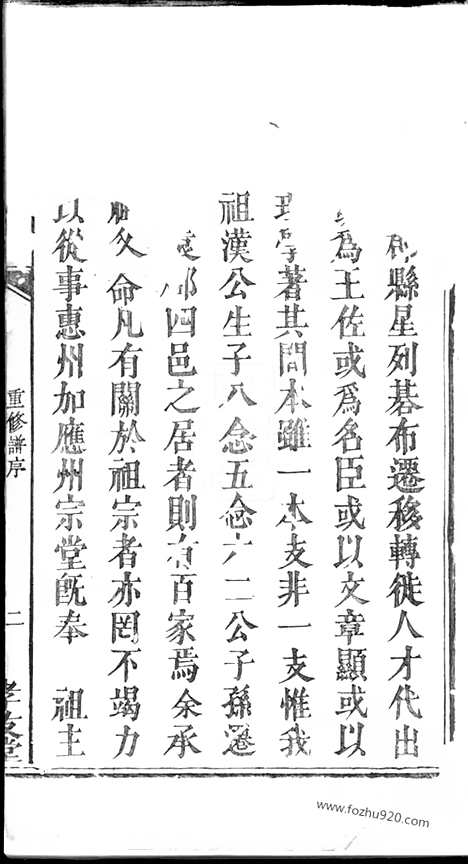 縣星列碁布遷移轉徙人才代出
為王佐或爲名臣或以文章顯或以
著其間本雖一本支非一支惟我
祖漢公生子八念五念六二公子孫遷
四邑之居者則有百家焉余承
父命凡有關於祖宗者亦罔不竭力
以從事惠州加應州宗堂既奉 祖主
重修譜序
二
www.fozhu920.com